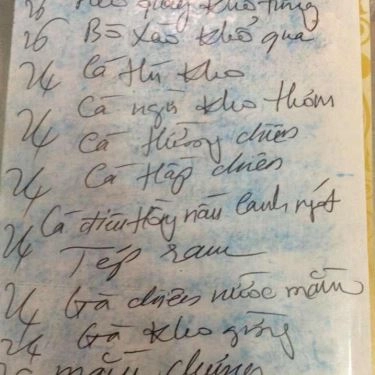 26 Heo quay kho trứng
26 Bò xào khổ qua
24 Cá thu kho
24 Cá ngừ kho thơm
24 Cá hường chiên
24 Cá tháp chiên
24 Cá điêu hồng nấu canh ngót
24 Tép ram
24 Gà chiên nước mắm
24 Gà kho gừng
mắm chưng